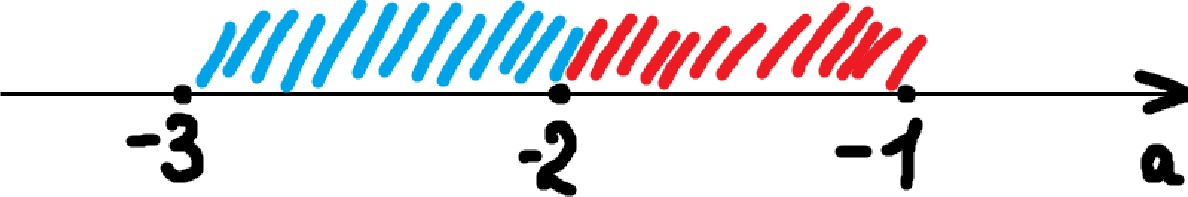 -3 -2 -1 a